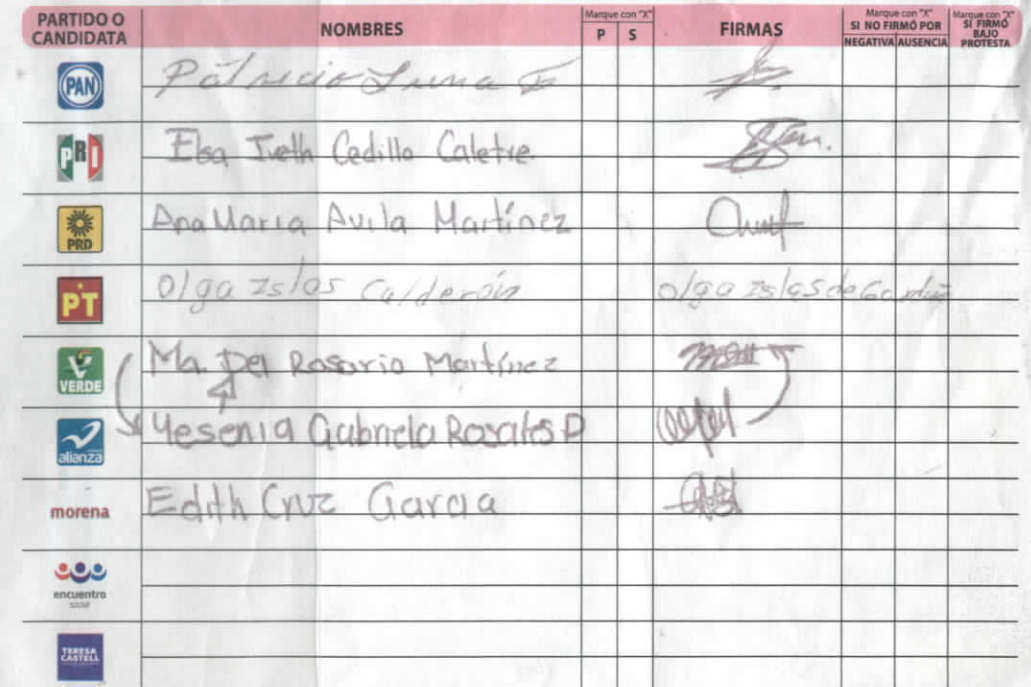 PARTIDO O CANDIDATA NOMBRES Marque con "X" P S FIRMAS Marque con "X" SI NO FIRMÓ POR NEGATIVA AUSENCIA Marque con "X" SI FIRMÓ BAJO PROTESTA
PAN Patricio Luna
PRI Elsa Iveth Cedillo Caletre.
PRD Ana Maria Avila Martínez
PT Olga Islas Calderón Olga Islas de
VERDE Ma. Del Rosario Martínez
alianza Yesenia Gabriela Rosales P
morena Edith Cruz Garcia
encuentro social
TERESA CASTELL